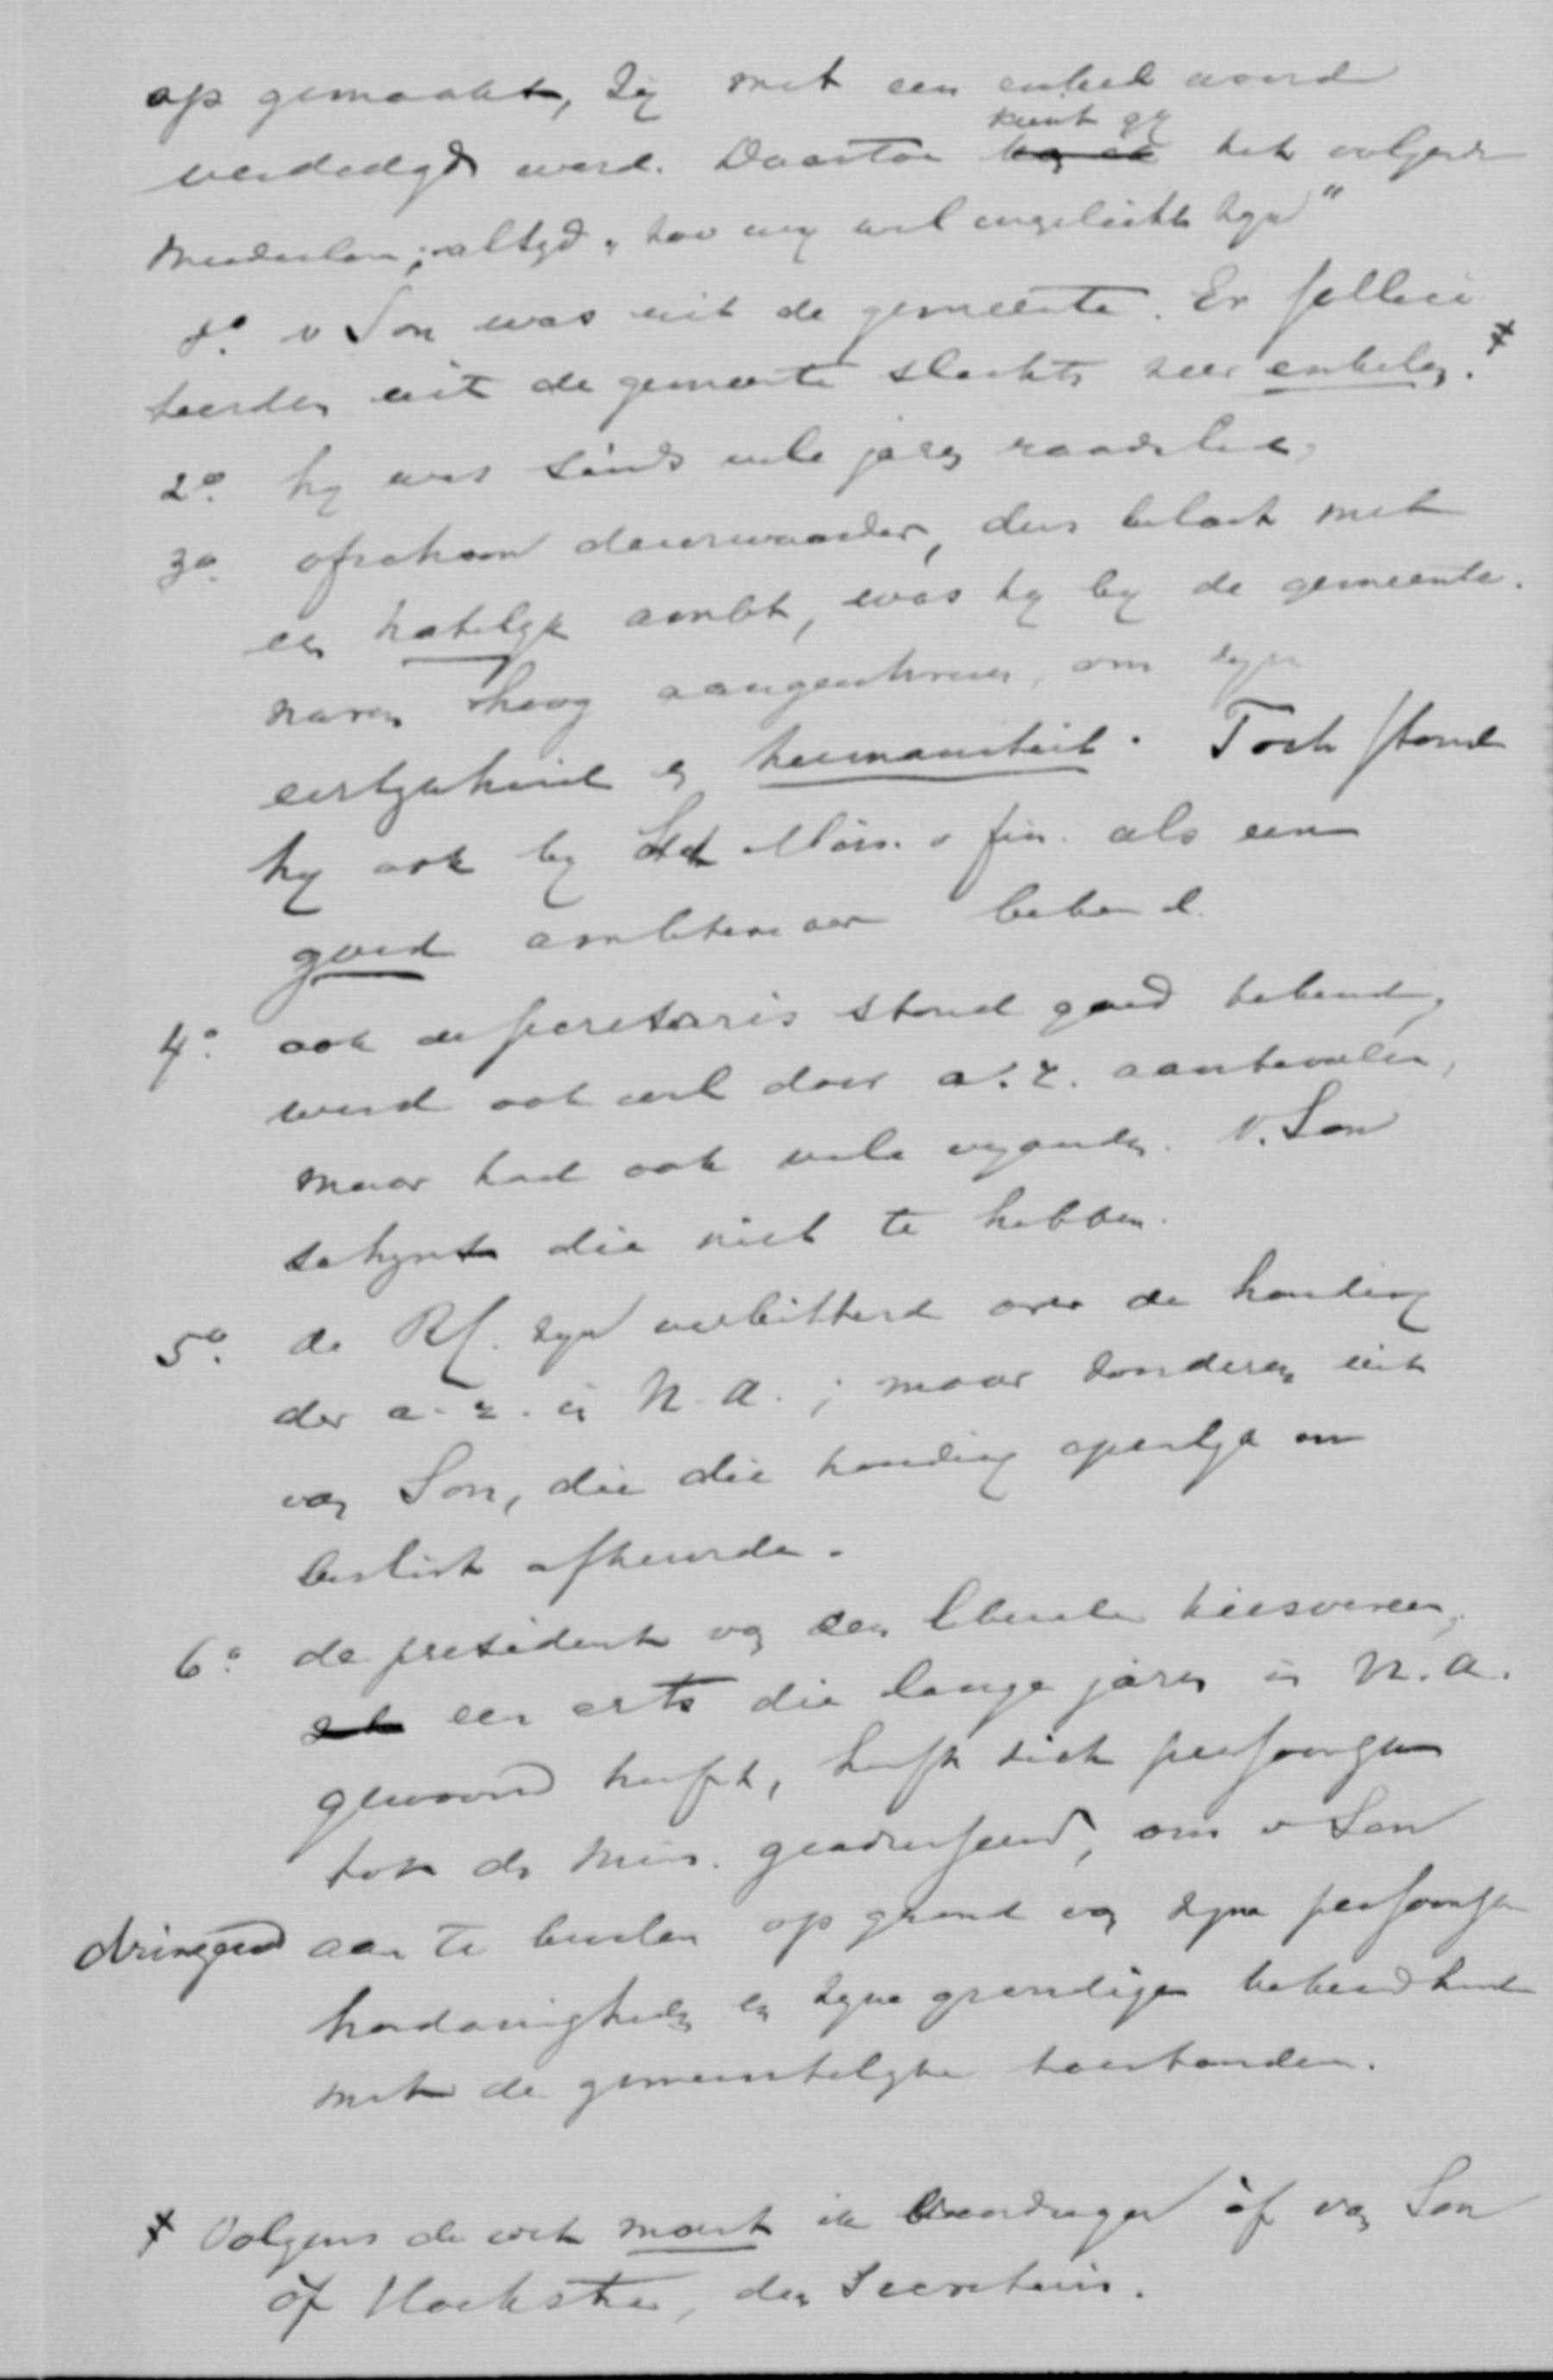 op gemaakt, zij met een enkel woord
verdedigd werd. Daartoe kunt gij het volgende
mededeelen; altijd „hoe mij wel ingelicht zijn"
1o. v Son was uit de gemeente. Er sollici
teerden uit de gemeente slechts zeer enkelen. ‡
2o. hij was sinds vele jaren raadslid,
3o. ofschoon deurwaarder, dus belast met
een hatelijk ambt, was hij bij de gemeente.
naren hoog aangeschreven, om zijn
eerlijkheid en humaniteit. Toch stond
hij ook bij het Min. v fin. als een
goed ambtenaar bekend.
4o. ook de secretaris stond goed bekend,
werd ook wel door a.r. aanbevolen,
maar had ook vele vijanden. v. Son
schijnt die niet te hebben.
5o. de Rf. zijn verbitterd over de houding
der a.r. in N.A.; maar zonderen uit
van Son, die die houding openlijk en
beslist afkeurde.
6o. de president van den liberalen kiesvereen.
een arts die lange jaren in N.A.
gewoond heeft, heeft zich persoonlijk
tot de Min. geadresseerd, om v Son
dringend aan te bevelen op grond van zijne persoonlijke
hoedanigheden en zijne grondige bekendheid
met de gemeentelijke toestanden.
‡ Volgens de wet moest ik voordragen òf van Son
òf Hoekstra, den Secretaris.